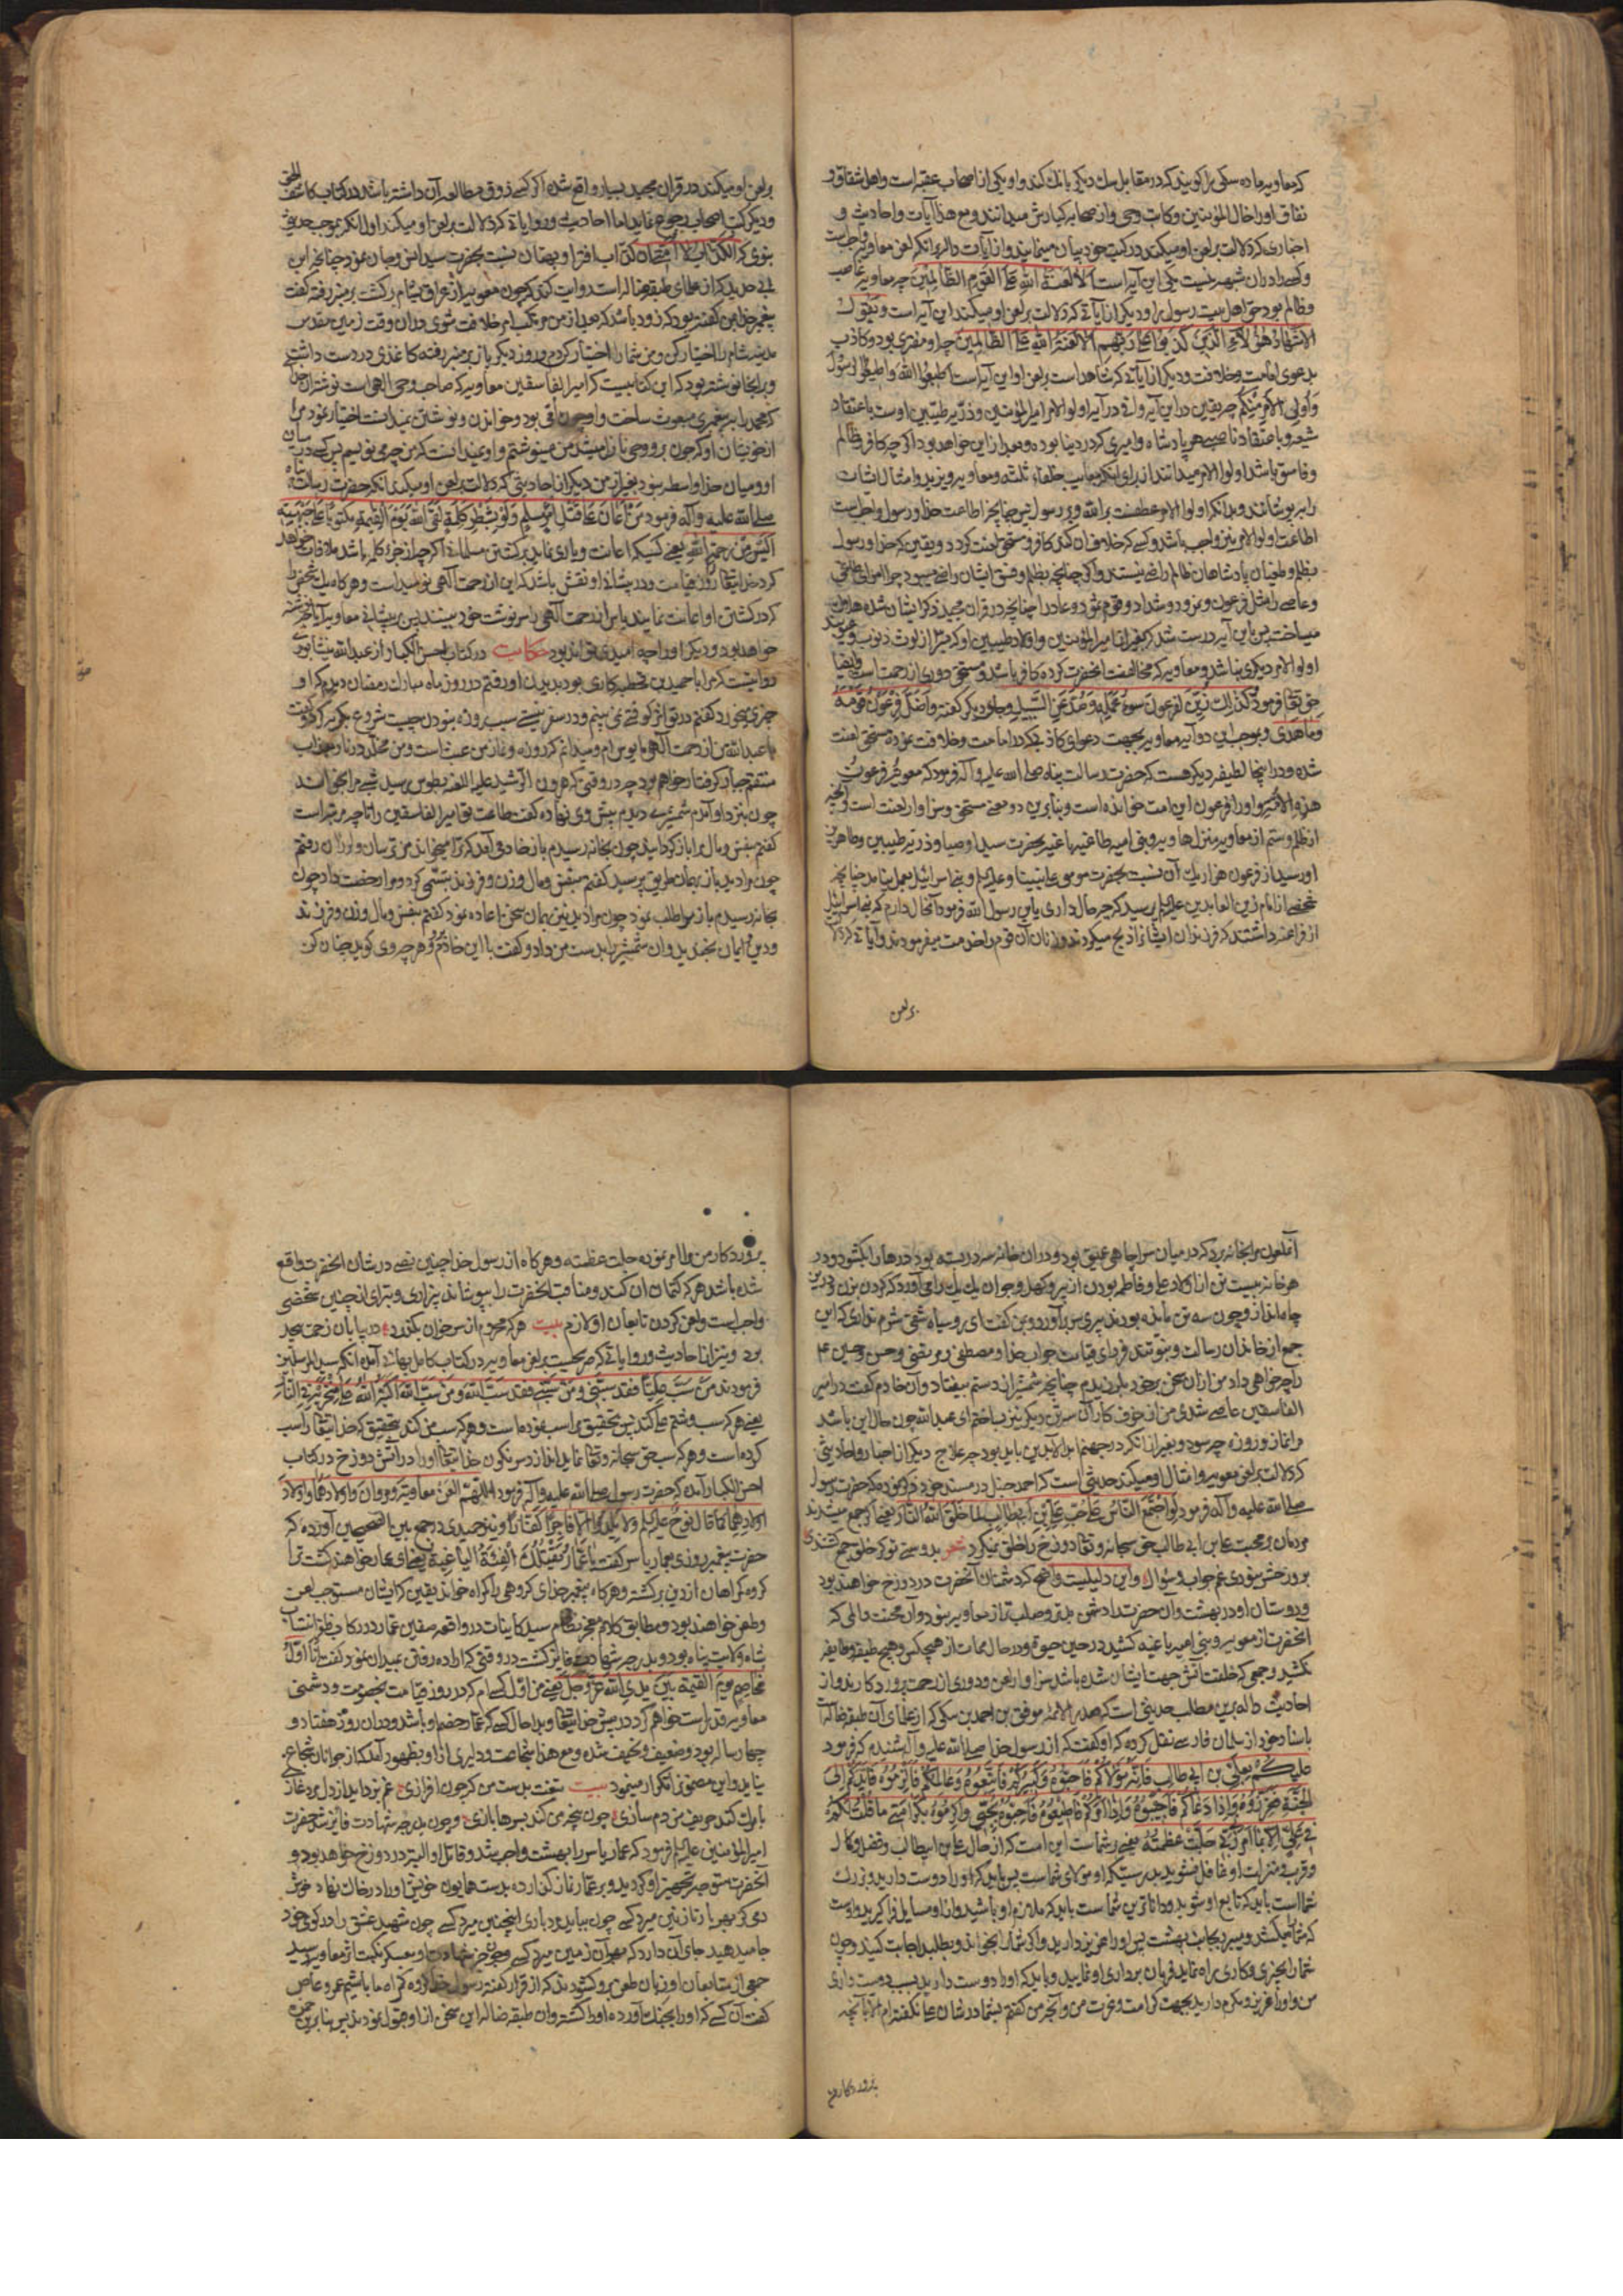 که معاویه ماده سکی را کویند که در مقابل سک دیکر بانک کند و او یکی از اصحاب عقبه است و اهل شقاق و
نفاق او را خال المؤمنین و کاتب وحی و از صحابه کبارش میدانند و مع هذا آیات و احادیث و
اخباری که دلالت بر لعن او میکند در کتب خود بیان مینمایند و از آیات داله بر انکه لعن معاویه واجبست
این آیه است الا لعنة الله علی القوم الظالمین چه معاویه غاصب
و ظالم بود حق اهل بیت رسول را و دیکر از آیاتی که دلالت بر لعن او میکند این آیه است و یقول
الاشهاد هؤلاء الذین کذبوا علی ربهم الا لعنة الله علی الظالمین چه او مفتری بود و کاذب
بدعوی امامت و خلافت و دیکر از آیاتی که شاهد است بر لعن او این آیه است اطیعوا الله و اطیعوا الرسول
و اولی الامر منکم چه یقین در این آیه وافی درآیه اولو الامر امیر المؤمنین و ذریه طیبین اوست باعتقاد
شیعه و باعتقاد ناصبی هر پادشاه و امیری که در دنیا بوده و بعد از این خواهد بود اکر چه کافر و ظالم
و فاسق باشد اولوا الامر میدانند از برای انکه معایب خلفاء ثلثه و معاویه و یزید و امثال ایشان
را بپوشانند و بدانکه اولوا الامر عطفست بر الله و بر رسول پس چنانچه اطاعت خدا و رسول واجبست
اطاعت اولوا الامر نیز واجب باشد و کسی که خلاف آن کند کافر و مستحق لعنت کردد و یقین که خدا و رسول
بظلم و طغیان پادشاهان ظالم راضی نیستند و اکر چنانچه بظلم و فسق ایشان راضی میبود چرا
و عاصی را مثل فرعون و نمرود و شداد و قوم ثمود و عاد را چنانچه در قران مجید ذکر ایشان شده هلاک
میساخت پس باین آیه درست شد که بغیر از امیر المؤمنین و اولاد طیبین او که مبرا از لوث ذنوب و
اولوا الامر دیکری نباشد و معاویه که مخالفت انحضرت کرده کافر باشد و مستحق دوری از رحمت است و ایضا
حق تعالی فرمود کذلک زین لفرعون سوء عمله و صد عن السبیل و جای دیکر کفته و اضل فرعون قومه
و ما هدی و بموجب این دو آیه معاویه بجهت دعوای کاذبی که در امامت و خلافت نموده مستحق لعنت
شده و در اینجا لطیفه دیکر هست که حضرت رسالت پناه صلی الله علیه و آله فرمود که معویة فرعون
هذه الامة و او را فرعون این امت خوانده است و بنا برین دو معنی مستحق و سزاوار لعنت است و آنچه
از ظلم و ستم از معاویه و بنی امیه طاغیه باغیه بحضرت سید اوصیا و ذریه طیبین و طاهرین
او رسید از فرعون هزار یک آن نسبت بحضرت موسی علی نبینا و علیه السلم و بنی اسرائیل بعمل نیامد چنانچه
شخصی از امام زین العابدین علیه السلم پرسید که چه حال داری یابن رسول الله فرمود آنحال دارم که بنی اسرائیل
از فراعنه داشتند که فرزندان ایشان را ذبح میکردند و زنان آن قوم را خدمت میفرمودند و آیات که
بر لعن
بر لعن او میکند در قران مجید بسیار واقع شده اکر کسی ذوق مطالعه آن داشته باشد در کتاب کاشف الحق
و دیکر کتب اصحاب رجوع نماید اما احادیثی و روایاتی که دلالت بر لعن او میکند اول انکه بموجب حدیث
نبوی که الکذاب لا امتی آن کذاب افترا و بهتان نسبت بحضرت سید انس و جان نمود چنانچه ابن
ابی حدید که از علمای طبقه ضاله است روایت کند که چون معویه از عراق بشام رکشت بر منبر رفته کفت
پیغمبر خدا بمن کفته بود که زود باشد که بعد از من مرتکب امر خلافت شوی دران وقت زمین مقدس
مدینه شام را اختیار کن و من شما را اختیار کردم و روز دیکر باز بر منبر رفته کاغذی در دست داشت
و برانجا نوشته بود که این کتابیست که امیر الفاسقین معاویه که صاحب وحی الهی است نوشته از
که محمد را به پیغمبری مبعوث ساخت و او چون امی بود و خواندن و نوشتن نمیدانست اختیار نمود مرا
از خویشان او که چون بر و وحی نازل میشد من مینوشتم و او نمیدانست که من چه می نویسم پس کسی در میان
او و میان خدا واسطه نبود بغیر از من دیکر از احادیثی که دلالت بر لعن او میکند انکه حضرت رسالت پناه
صلی الله علیه و آله فرمود من اعان علی قتل امرء مسلم و لو بشطر کلمة لقی الله یوم القیمة مکتوبا علی جبهته
آیس من رحمة الله یعنی کسی که اعانت و یاری نماید بر کشتن مسلمانی اکر چه از جزو کلمه باشد ملاقات خواهد
کرد خدایتعالی را روز قیامت و در پیشانی او نقش باشد که این از رحمت آلهی نومید است و هر کاه یک شخص را
که در کشتن او اعانت نمایند یاس از رحمت آلهی را سرنوشت خود بینند پس پیشانی معاویه آیا چه نوشته
خواهد بود و دیکر او را چه امیدی تواند بود حکایت در کتاب احسن الکبار از عبد الله نیشابوری
روایتست که مرا با حمید بن قحطبه کاری بود بدیدن او رفتم در روز ماه مبارک رمضان دیدم که او
چیزی میخورد کفتم در تو اثر کوفتی نمی بینم و در سفر نیستی سبب روزه نبودن چیست شروع بکریه کرد و کفت
یا عبد الله من از رحمت آلهی مایوس ام و میدانم که روزه و نماز من عبث است و من مخلد در نار و بعذاب
منتقم جبار کرفتار خواهم بود چه در وقتی که هرون الرشید علیه اللعنه بطوس رسید شبی مرا بخواند
چون بنزد او آمدم شمشیری دیدم پیش وی نهاده کفت طاعت تو امیر الفاسقین را تا چه مرتبه است
کفتم بنفس و مال مرا باز کردانید چون بخانه رسیدم باز خادمی آمد که ترا میخواند من ترسان و لرزان رفتم
چون مرا دید باز بهمان طریق پرسید کفتم بنفس و مال و زن و فرزند تبسمی کرد و مرا رخصت داد چون
بخانه رسیدم باز مرا طلب نمود چون مرا دید نیز همان سخن اعاده نمود کفتم بنفس و مال و زن و فرزند
و دین و ایمان بخندید و ان شمشیر را بدست من داد و کفت با این خادم برو هر چه وی کوید چنان کن
آنملعون مرا بخانه برد که در میان سرا چاهی عمیق بود و دران خانه سه در بسته بود در ها را بکشود و در
هر خانه بیست تن از اولاد علی و فاطمه بودن از پیر و کهل و جوان یک یک را می آورد که کردن بزن و درین
چاه انداز و چون سه تن مانده بودند پیری سر برآورد و بمن کفت ای رو سیاه شقی شرم نداری که این
جمع از خاندان رسالت و نبوتند فردای قیامت جواب خدا و مصطفی و مرتضی و حسن و حسین ع
را چه خواهی داد من ازان سخن بر خود بلرزیدم چنانچه شمشیر از دستم بیفتاد و آن خادم کفت در امیر
الفاسقین عاصی شدی من از خوف کار آن سه تن دیکر نیز بساختم ای عبد الله چون حال این باشد
مرا نماز و روزه چه سود و بغیر از انکه در جهنم ابد الآبدین باید بود چه علاج دیکر از اخبار و احادیثی
که دلالت بر لعن معویه و امثال او میکند حدیثی است که احمد حنبل در مسند خود ذکر نموده که حضرت رسول
صلی الله علیه و آله فرمود لو اجتمع الناس علی حب علی بن ابی طالب لما خلق الله النار یعنی اکر جمع میشدند
مردمان بر محبت علی بن ابی طالب حق سبحانه و تعالی دوزخ را خلق نمیکرد شعر بدوستی تو کر خلق جمع کشتندی
بروز حشر نبودی غم جواب و سؤال و این دلیلیست واضح که دشمنان آنحضرت در دوزخ خواهند بود
و دوستان او در بهشت و ان حضرت را دشمنی بدتر و صلب تر از معاویه نبود و ان محنت و المی که
آنحضرت از معویه و بنی امیه باغیه کشید در حین حیوة و در حال ممات از هیچکس و هیچ طبقه و طایفه
نکشید و جمعی که خلقت آتش جهت ایشان شده باشد سزاوار لعن و دوری از رحمت پروردکارند و از
احادیث داله برین مطلب حدیثی است که صدر الائمه موفق بن احمد بن مکی که از علمای آن طبقه ضاله است
باسناد خود از سلمان فارسی نقل کرده که او کفت که از رسول خدا صلی الله علیه و آله شنیدم که فرمود
علیکم بعلی بن ابی طالب فانه مولاکم فاحبوه و کبیرکم فاتبعوه و عالمکم فاکرموه قایدکم الی
الجنة فعززوه و اذا دعاکم فاجیبوه و اذا امرکم فاطیعوه فاحبوه بحبی و اکرموه بکرامتی ما قلت لکم
فی علی الا بما امرنی ربی جلت عظمته یعنی بر شماست این امت که از حال علی بن ابیطالب و فضل و کمال
و قرب و منزلت او غافل نشوید بدرستیکه او مولای شماست پس باید که او را دوست دارید و بزرک
شما است باید که تابع او شوید و داناترین شماست باید که ملازم او باشید و ازو مسایل فرا کیرید و اوست
که شما را میکشد و میبرد بجانب بهشت پس او را عزیز دارید و اکر شما را بخواند و بطلبد اجابت کنید و چون
شما را بچیزی و کاری راه نماید فرمان برداری او نمایید و باید که او را دوست دارید بسبب دوست داری
من و او را عزیز و مکرم دارید بجهت کرامت و عزت من و آنچه من کفتم بشما در شان علی نکفته ام الا بآنچه
پروردکار من
پروردکار من مرا امر نموده جلت عظمته و هر کاه از رسول خدا چنین نصی در شان انحضرت واقع
شده باشد هر که کتمان ان کند و مناقب انحضرت را بپوشاند بیزاری و تبرای از چنین شخصی
واجبست و لعن کردن تابعان او لازم بیت هر که محروم از سر خوان بکذرد در بیابان زحمت بیحد
برد و نیز از احادیث و روایاتی که صریحست بر لعن معاویه در کتاب کامل بهائی آمده انکه سید المرسلین
فرمودند من سب علیا فقد سبنی و من سبنی فقد سب الله و من سب الله اکبه الله علی منخریه فی النار
یعنی هر که سب و شتم علی کند پس بتحقیق مرا سب نموده است و هر که سب من کند بتحقیق که خدایتعالی را سب
کرده است و هر که سب حق سبحانه و تعالی نماید اندازد سرنکون خدایتعالی او را در آتش دوزخ در کتاب
احسن الکبار آمده که حضرت رسول صلی الله علیه و آله فرمود اللهم العن معاویة و مروان و اولادهما و اولاد
اولادهما کما قال نوح علیه السلم و لا یلدوا الا فاجرا کفارا و نیز حمیدی در جمع بین الصحیحین آورده که
حضرت پیغمبر روزی بعمار یاسر کفت یا عمار تقتلک الفئة الباغیة یعنی ای عمار خواهند کشت ترا
کروه کمراهان از دین برکشته و هر کاه پیغمبر خدای کروهی را کمراه خواند یقین که ایشان مستوجب لعن
و طعن خواهند بود و مطابق کلام معجز نظام سید کاینات در واقعه صفین عمار در رکاب ظفر انتساب
شاه ولایت پناه بود و بدرجه شهادت فایز کشت در وقتی که اراده رفتن بمیدان نمود کفت انا اول
مخاصم یوم القیمة بین یدی الله عز و جل یعنی من اول کسی ام که در روز قیامت بخصومت و دشمنی
معاویه قد راست خواهم کرد در پیش خدایتعالی و بدا حال کسی که عمار خصم او باشد و دران روز هفتاد و
چهار ساله بود و ضعیف و نحیف شده و مع هذا شجاعت و دلیری ازو بظهور آمد که از جوانان شجاع
نیاید و این مضمون را تکرار مینمود بیت تیغت بدست من کر چون افرازی غم بزداید از دل مرد غازی
با مرک کند حریف من دم سازی چون پنجه من کند بسرها بازی و چون بدرجه شهادت فایز شد حضرت
امیر المؤمنین علیه السلم فرمود که عمار یاسر را بهشت واجب شد و قاتل او البته در دوزخ خواهد بود و
آنحضرت متوجه تجهیز او کردید و بر عمار نماز کذارده بدست همایون خویش او را در خاک نهاد خوش
دمی کز بهر یار نازنین میرد کسی چون بباید مرد باری اینچنین میرد کسی چون شهید عشق را در کوی خود
جا میدهید جای آن دارد که بهر آن زمین میرد کسی و چون خبر شهادت او بعسکر نکبت اثر معاویه رسید
جمعی از متابعان او زبان طعن برو کشودند که از قرار کفته رسول خدا کروه کمراه ما باشیم عمرو عاص
کفت آن کسی که او را بجنک آورده او را کشته و ان طبقه ضاله این سخن را ازو قبول نمودند پس بنا برین